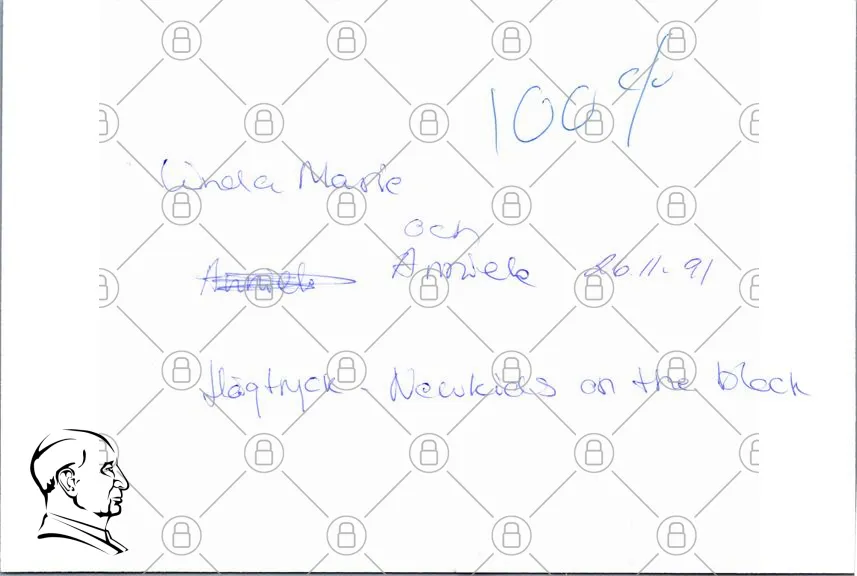 100 %
Linda Marie
och
Anniek 26.11.91
Högtryck - Newkids on the block